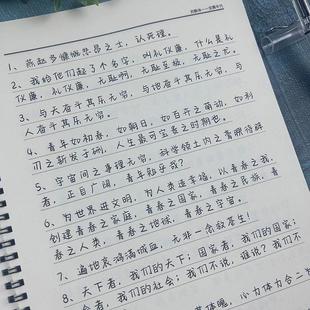 1、燕赵多慷慨悲昂之士，认死理。
2、我给他们起了个名字，叫礼仪廉，什么是礼
仪廉，礼仪廉，无耻啊，无耻至极，无耻之尤。
3、与天奋斗其乐无穷，与地奋斗其乐无穷，与
人奋斗其乐无穷。
4、青年如初春，如朝日，如百卉之萌动，如利
刃之新发于硎，人生最可宝贵之时期也。
5、宇宙间之事理无穷，科学领土内之膏腴待辟
者，正自广阔，青年勉乎哉？
6、为世界进文明，为人类造幸福，以青春之我，
创建青春之家庭，青春之国家，青春之民族，青
春之人类，青春之地球，青春之宇宙。
7、遍地哀鸿满城血，无非一念救苍生！
8、天下者，我们的天下；国家者，我们的国家；
社会者，我们的社会；我们不说，谁说？我们不